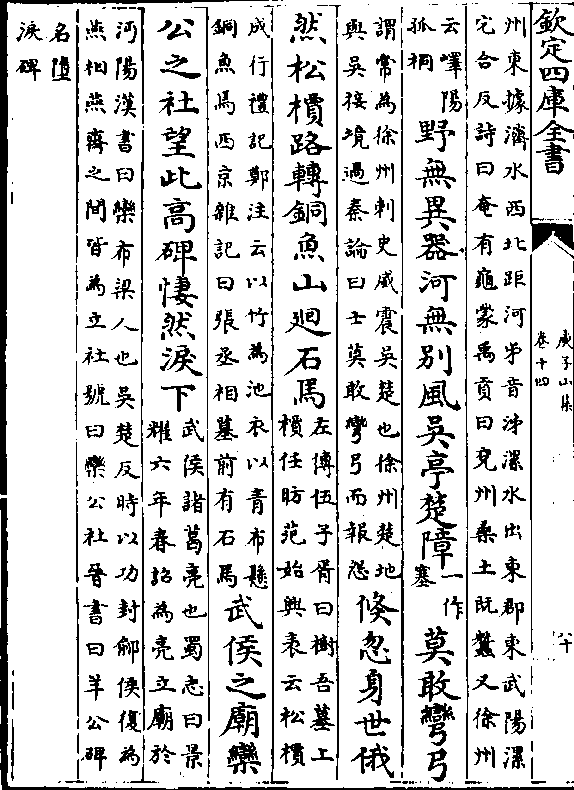 欽定四庫全書
庾子山集
卷十四
八十
州東據濟水西北距河弟音泲漯水出東郡東武陽漯
完合反詩曰奄有龜蒙禹貢曰兗州桑土既蠶又徐州
云嶧陽
孤桐
野無異器河無别風吳亭楚障
一作
塞
莫敢彎弓
謂常為徐州刺史威震吳楚也徐州楚地
與吳接境過秦論曰士莫敢彎弓而報怨
倏忽身世俄
然松檟路轉銅魚山廻石馬
左傳伍子胥曰樹吾墓上
檟任昉范始興表云松檟
成行禮記鄭注云以竹為池衣以青布懸
銅魚焉西京雜記曰張丞相墓前有石馬
武侯之廟欒
公之社望此高碑悽然淚下
武侯諸葛亮也蜀志曰景
耀六年春詔為亮立廟於
沔陽漢書曰欒布梁人也吳楚反時以功封鄃侯復為
燕相燕齊之間皆為立社號曰欒公社晉書曰羊公碑
名墮
淚碑